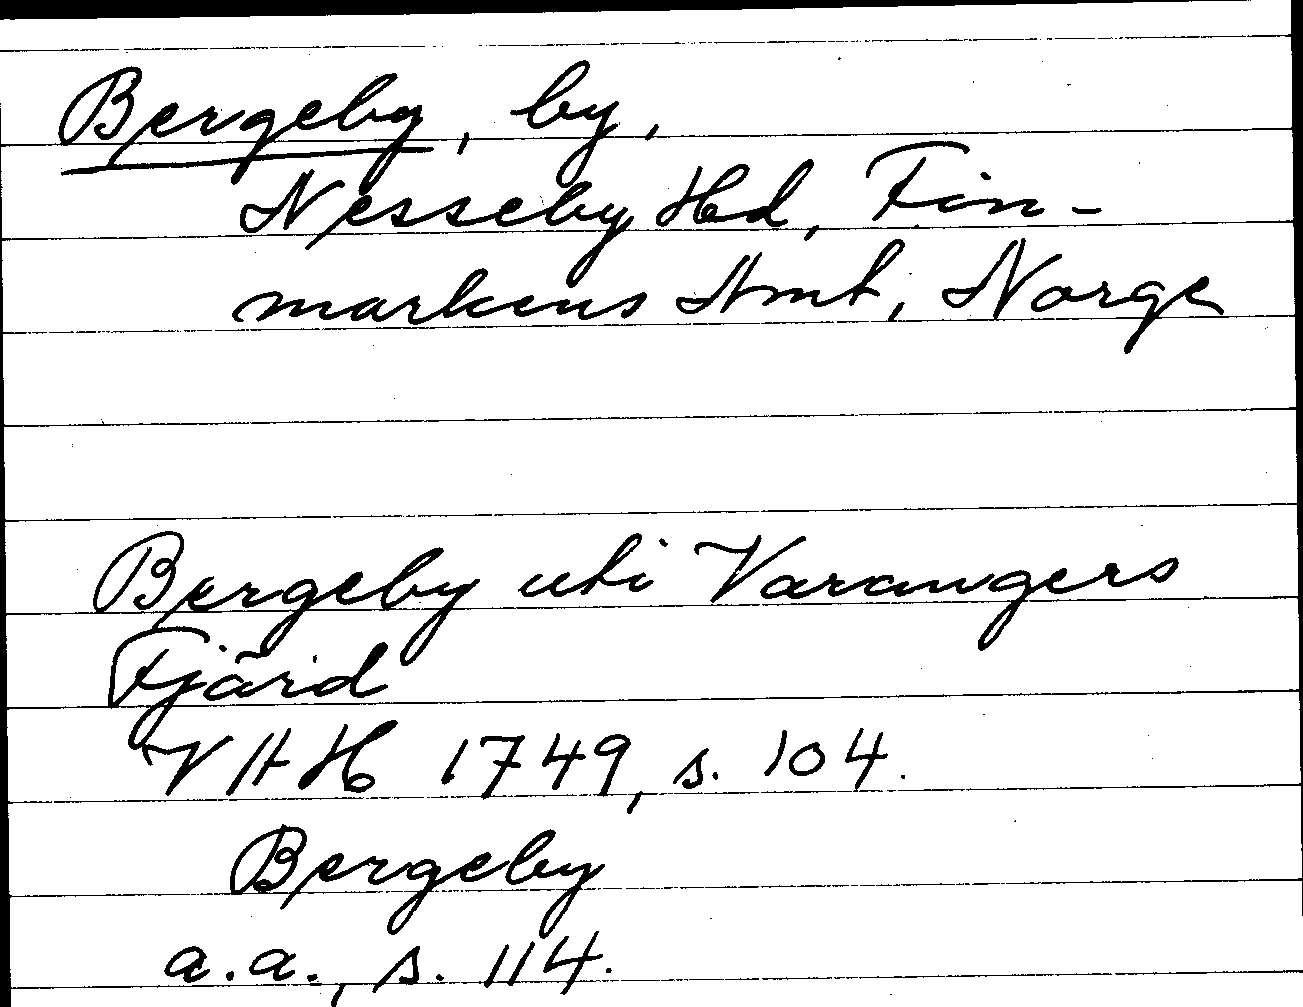 Bergeby, by,
Nesseby Hd, Fin-
markens Amt, Norge
Bergeby uti Varangers
Fjärd
VAH 1749, s. 104.
Bergeby
a.a., s. 114.